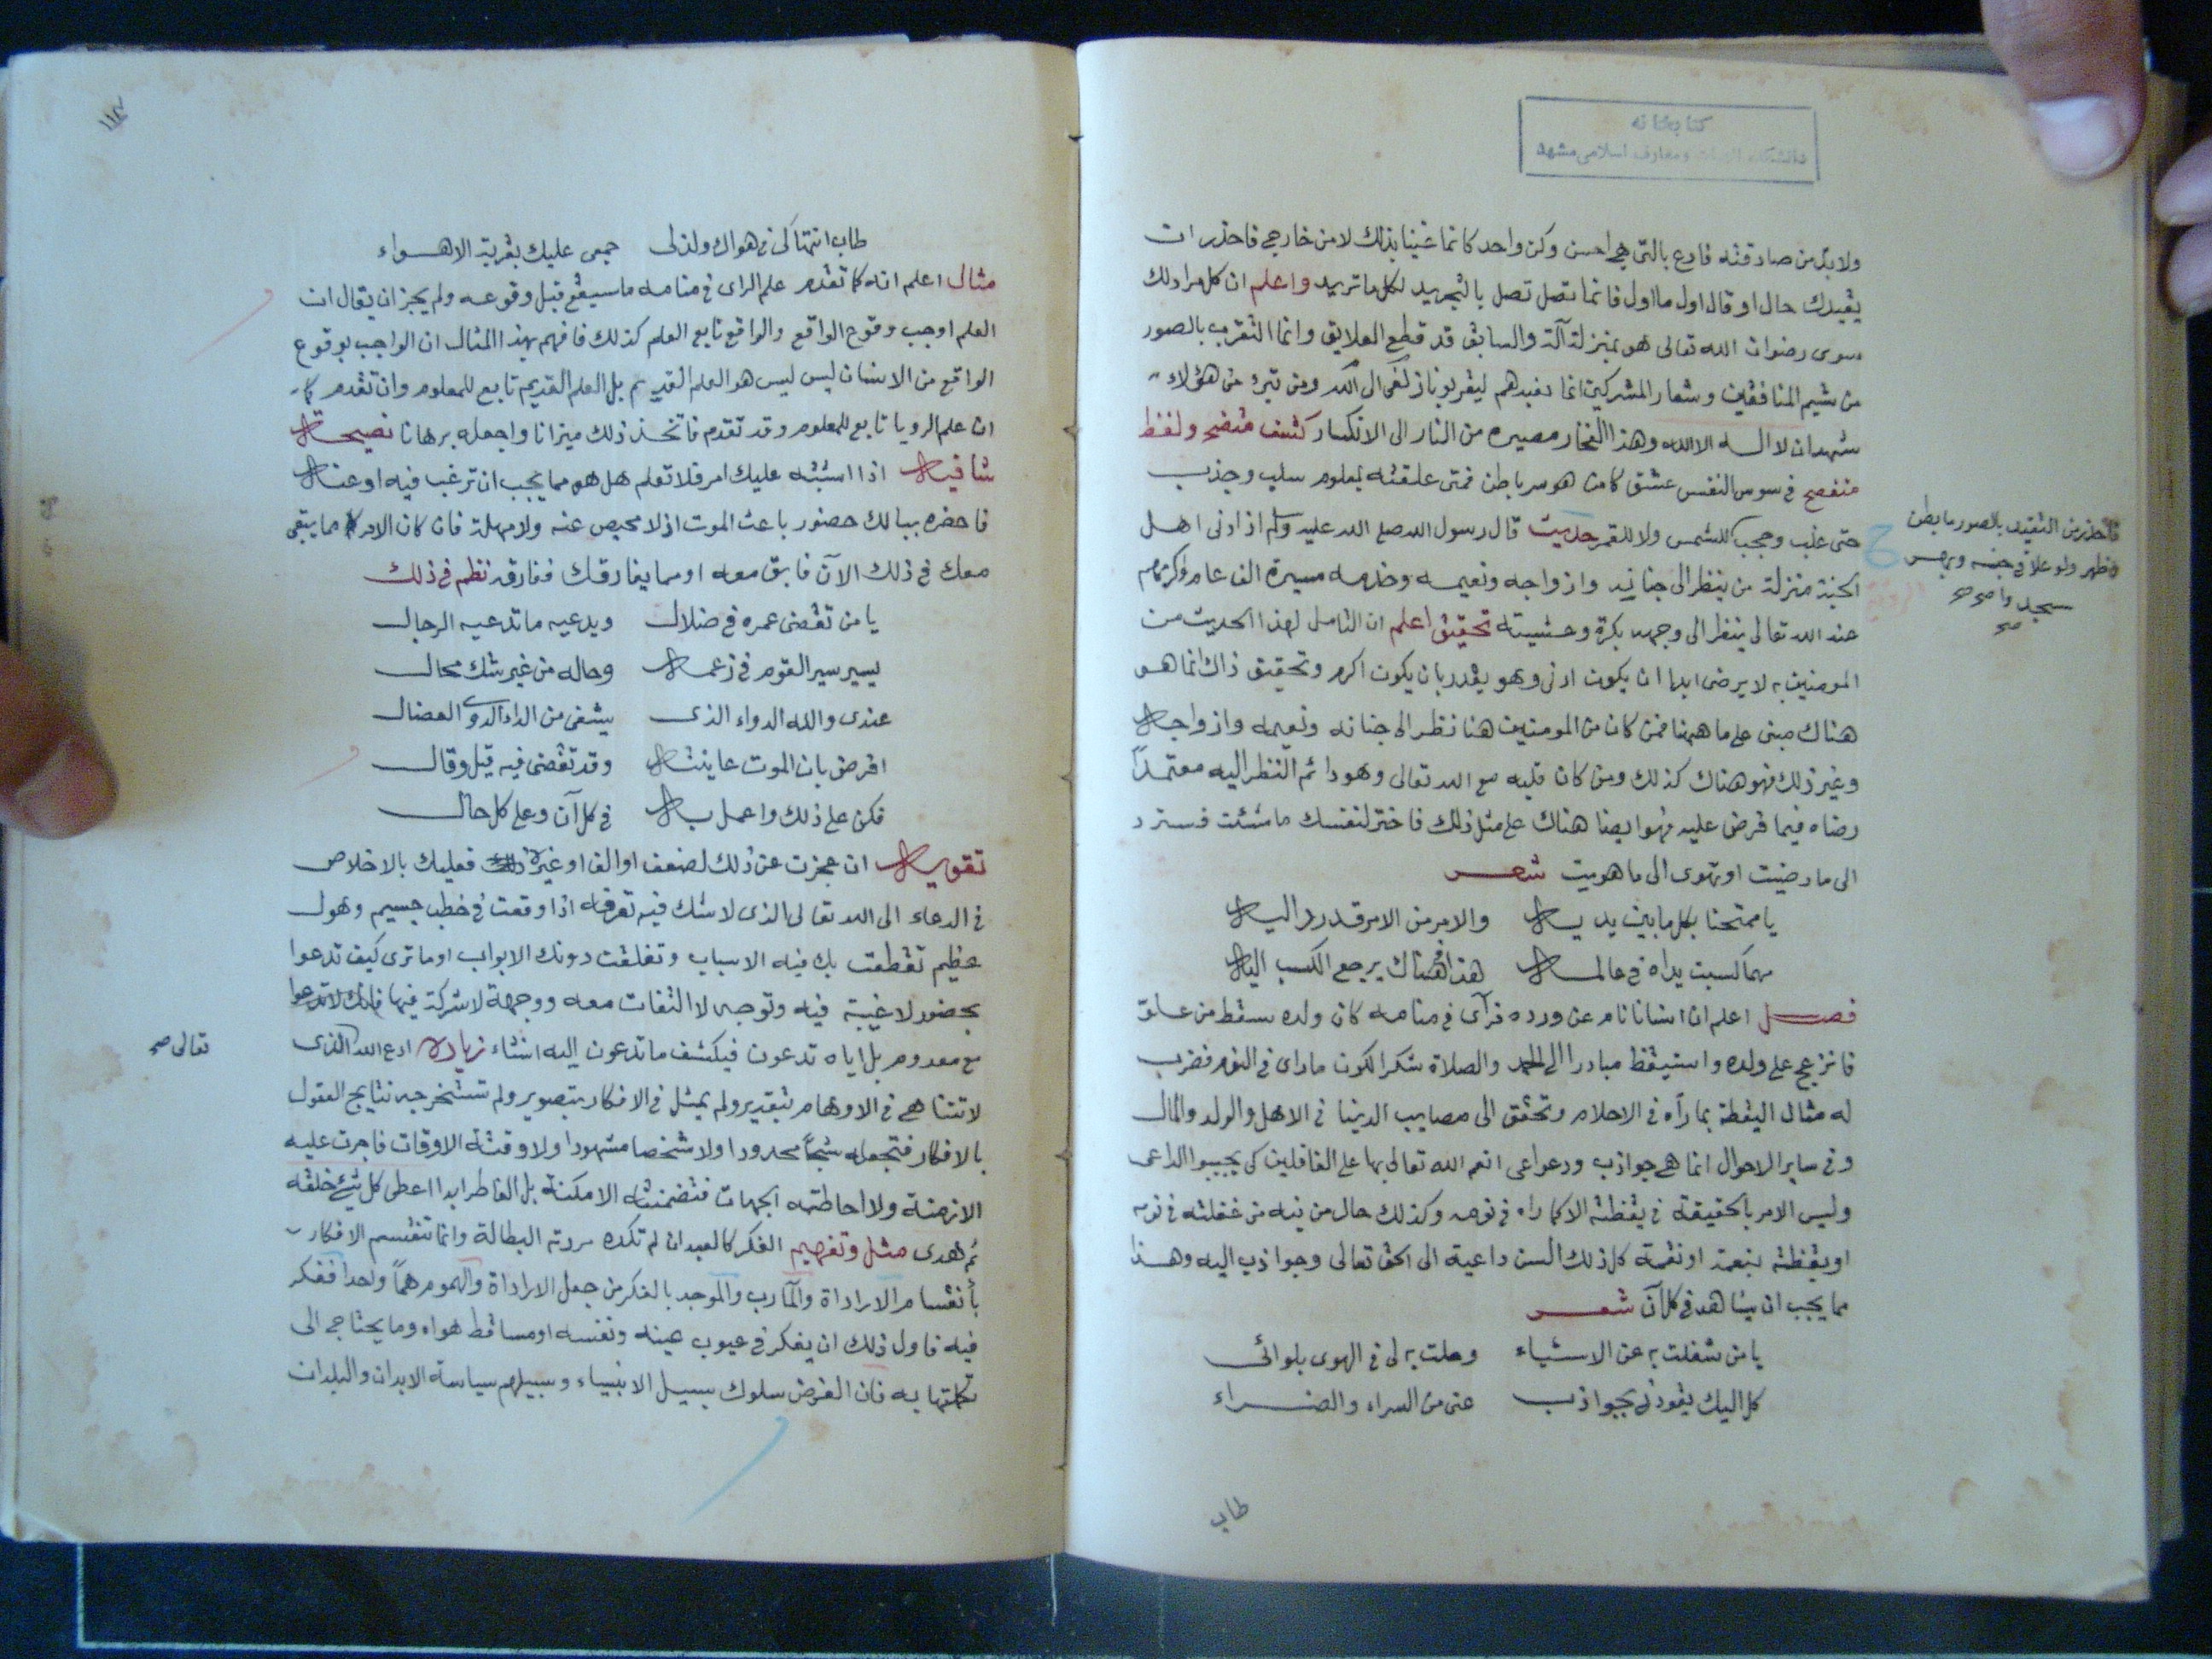 كتابخانه
دانشكده الهيات ومعارف اسلامى مشهد
ولابد من صادقته فادع بالتى هى احسن وكن واحد كانما غنينا بذلك لا من خارج فاحذر ان
يقيدك حال او قال اول ما اول فانما تصل تصل بالتجريد لكل ما تريد واعلم ان كل مراد لك
سوى رضوان الله تعالى هو بمنزلة آلة والسابق قد قطع العلايق وانما التقرب بالصور
من شيم المنافقين وشعار المشركين انما نعبدهم ليقربونا زلفى الى الله ومن تبرء من هؤلاء
شهد ان لا اله الا الله وهذا الفخار مصيره من النار الى الانكسار كشف متضح ولفظ
منفصح فى سوس النفس عشق كامن هو سر باطن فمتى علقته بمعلوم سلب وجذب
حتى غلب وحجب كالشمس ولا للقمر حديث قال رسول الله صلى الله عليه وسلم ان ادنى اهل
الجنة منزلة من ينظر الى جنانه وازواجه ونعيمه وخدمه مسيرة الف عام واكرمهم
عند الله تعالى ينظر الى وجهه بكرة وعشيته تحقيق اعلم ان التامل لهذا الحديث من
المومنين به لا يرضى ابدا ان يكون ادنى وهو يقدر بان يكون اكرم وتحقيق ذاك انما هو
هناك مبنى على ما ههنا فمن كان من المومنين هنا نظر الى جنانه ونعيمه وازواجه
وغير ذلك فهو هناك كذلك ومن كان قلبه مع الله تعالى وهو دائم النظر اليه معتمدا
رضاه فيما فرض عليه فهو ايضا هناك على مثل ذلك فاختر لنفسك ما شئت فسترد
الى ما رضيت او تهوى الى ما هويت شعر
يا ممتحنا بكل ما بين يديه والامر من الامر قد رد اليه
مهما كسبت يداه فى عالمه هذا فهناك يرجع الكسب اليه
فصل اعلم ان انسانا نام عن ورده فرآى فى منامه كان ولده سقط من علو
فانزعج على ولده واستيقظ مبادرا الى الحمد والصلاة شكرا لكون ما راى فى النوم فضرب
له مثال اليقظة بما رآه فى الاحلام وتحقق الى مصايب الدنيا فى الاهل والولد والمال
وفى ساير الاحوال انما هى جواذب ودعواعى انعم الله تعالى بها على الغافلين كى يجيبوا الداعى
وليس الامر بالحقيقة فى يقظته الا كما راه فى نومه وكذلك حال من نبه من غفلته فى نومه
او يقظته بنعمة او نقمة كل ذلك السن داعية الى الحق تعالى وجواذب اليه وهذا
مما يجب ان يشاهد فى كل آن شعر
يا من شغلت به عن الاشياء وحلت به لى فى الهوى بلوائى
كل اليك يقودنى بجواذب عنى من السراء والضراء
طاب
فاحذر من التقيد بالصور ما بطن
وظهر ولو علا فى جنسه
طاب انتهاكى فى هواك ولذلى جمعى عليك بفرقة الاهواء
مثال اعلم انه كما تقدم علم الراى فى منامه ما سيقع قبل وقوعه ولم يجز ان يقال ان
العلم اوجب وقوع الواقع والواقع تابع العلم كذلك فافهم بهذا المثال ان الواجب بوقوع
الواقع من الانسان ليس ليس هو العلم القديم بل العلم القديم تابع للمعلوم وان تقدم كما
ان علم الرويا تابع للمعلوم وقد تقدم فاتخذ ذلك ميزانا واجعله برهانا نصيحة
شافيه اذا اشتبه عليك امر فلا تعلم هل هو مما يجب ان ترغب فيه او عنه
فاحضره ببالك حضور باعث الموت اذ لا محيص عنه ولا مهلة فان كان الامر مما يبقى
معك فى ذلك الآن فابق معه او مما يفارقك ففارقه نظم فى ذلك
يا من تقضى عمره فى ضلال ويدعيه ما تدعيه الرجال
يسير سير القوم فى زعمه وحاله من غير شك محال
عندى والله الدواء الذى يشفى من الداء الدوى العضال
افرض بان الموت عاينته وقد تقضى فيه قيل وقال
فكن على ذلك واعمل به فى كل آن وعلى كل حال
تقويه ان عجزت عن ذلك لضعف او الف او غيره فعليك بالاخلاص
فى الدعاء الى الله تعالى الذى لا شك فيه تعرفه اذا وقعت فى خطب جسيم وهول
عظيم تقطعت بك فيه الاسباب وتغلقت دونك الابواب او ما ترى كيف تدعوا
بحضور لا غيبة فيه وتوجه لا التفات معه ووجهة لا شركة فيها فانك لا تدعوا
مع معدوم بل اياه تدعون فيكشف ما تدعون اليه ان شاء زيادة ادع الله الذى
لا تتناهى فى الاوهام بتقدير ولم يمثل فى الافكار بتصوير ولم تستخرجه نتايج العقول
بالافكار فتجعله شبحا محدودا ولا شخصا مشهودا ولا وقتته الاوقات فاجرت عليه
الازمنة ولا احاطته الجهات فتضمنته الامكنة بل الفاطر ابدا اعطى كل شئ خلقه
ثم هدى مثل وتفهيم الفكر كالعبد ان لم تكده مردته البطالة وانما تنقسم الافكار
بأنقسام الاراداة والمآرب والموجد بالفكر من جعل الاراداة والهموم هما واحدا ففكر
فيه فاول ذلك ان يفكر فى عيوب عينه ونفسه او مساقط هواه وما يحتاج الى
تكملتها به فان الغرض سلوك سبيل الانبياء وسبيلهم سياسة الابدان والبلدان
تعالى صح